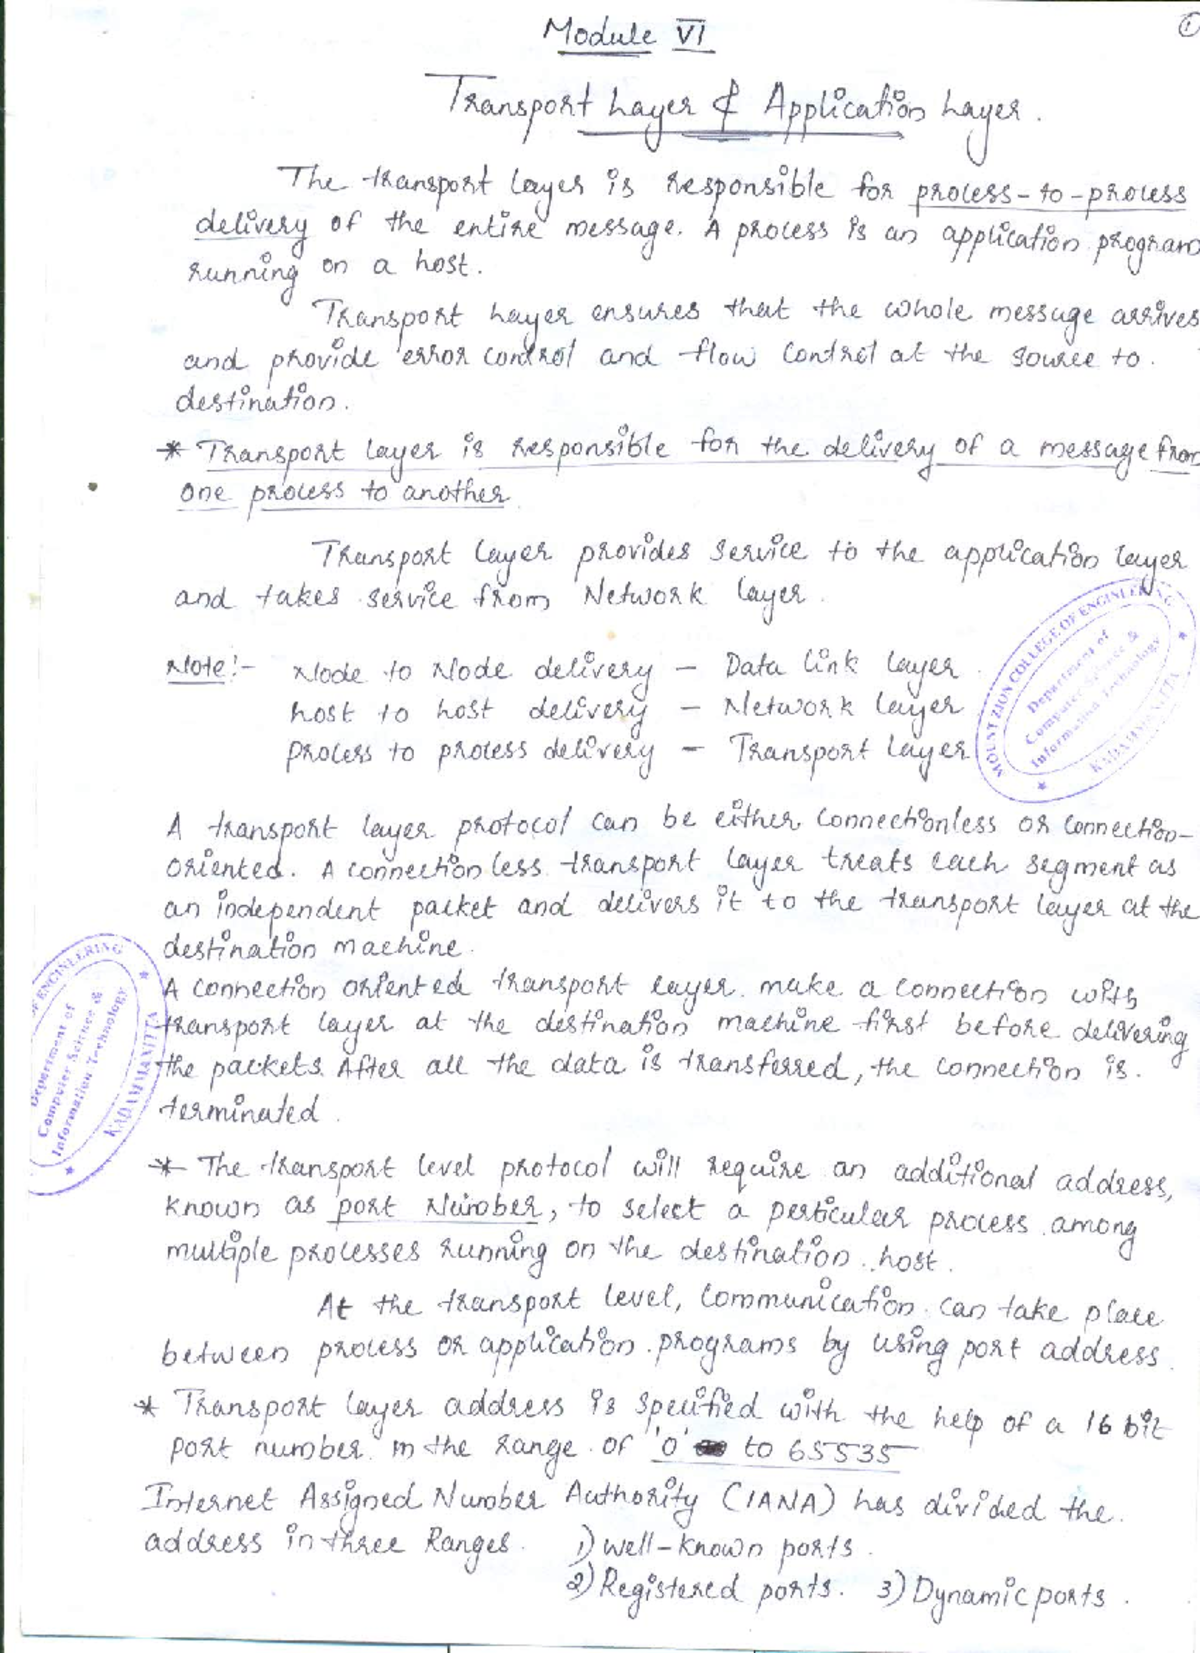 Module VI
1
Transport Layer & Application Layer.
The transport layer is responsible for process-to-process
delivery of the entire message. A process is an application program
running on a host.
Transport Layer ensures that the whole message arrives
and provide error control and flow control at the source to.
destination.
* Transport layer is responsible for the delivery of a message from
one process to another
Transport Layer provides service to the application layer
and takes service from Network layer.
Note:- Node to Node delivery – Data link layer
host to host delivery – Network layer
process to process delivery – Transport layer
MOUNT ZION COLLEGE OF ENGINEERING
Department of
Computer Science &
Information Technology
KADAMMANITTA
A transport layer protocol can be either connectionless or connection-
oriented. A connection less transport layer treats each segment as
an independent packet and delivers it to the transport layer at the
destination machine.
A connection oriented transport layer make a connection with
transport layer at the destination machine first before delivering
the packets. After all the data is transferred, the connection is.
terminated.
OF ENGINEERING
Department of
Computer Science &
Information Technology
KADAMMANITTA
* The transport level protocol will require an additional address,
known as port Number, to select a perticular process among
multiple processes running on the destination host.
At the transport level, communication can take place
between process or application programs by using port address.
* Transport layer address is specified with the help of a 16 bit
port number in the range of '0' to 65535
Internet Assigned Number Authority (IANA) has divided the.
address in three Ranges. 1) well-known ports.
2) Registered ports. 3) Dynamic ports.